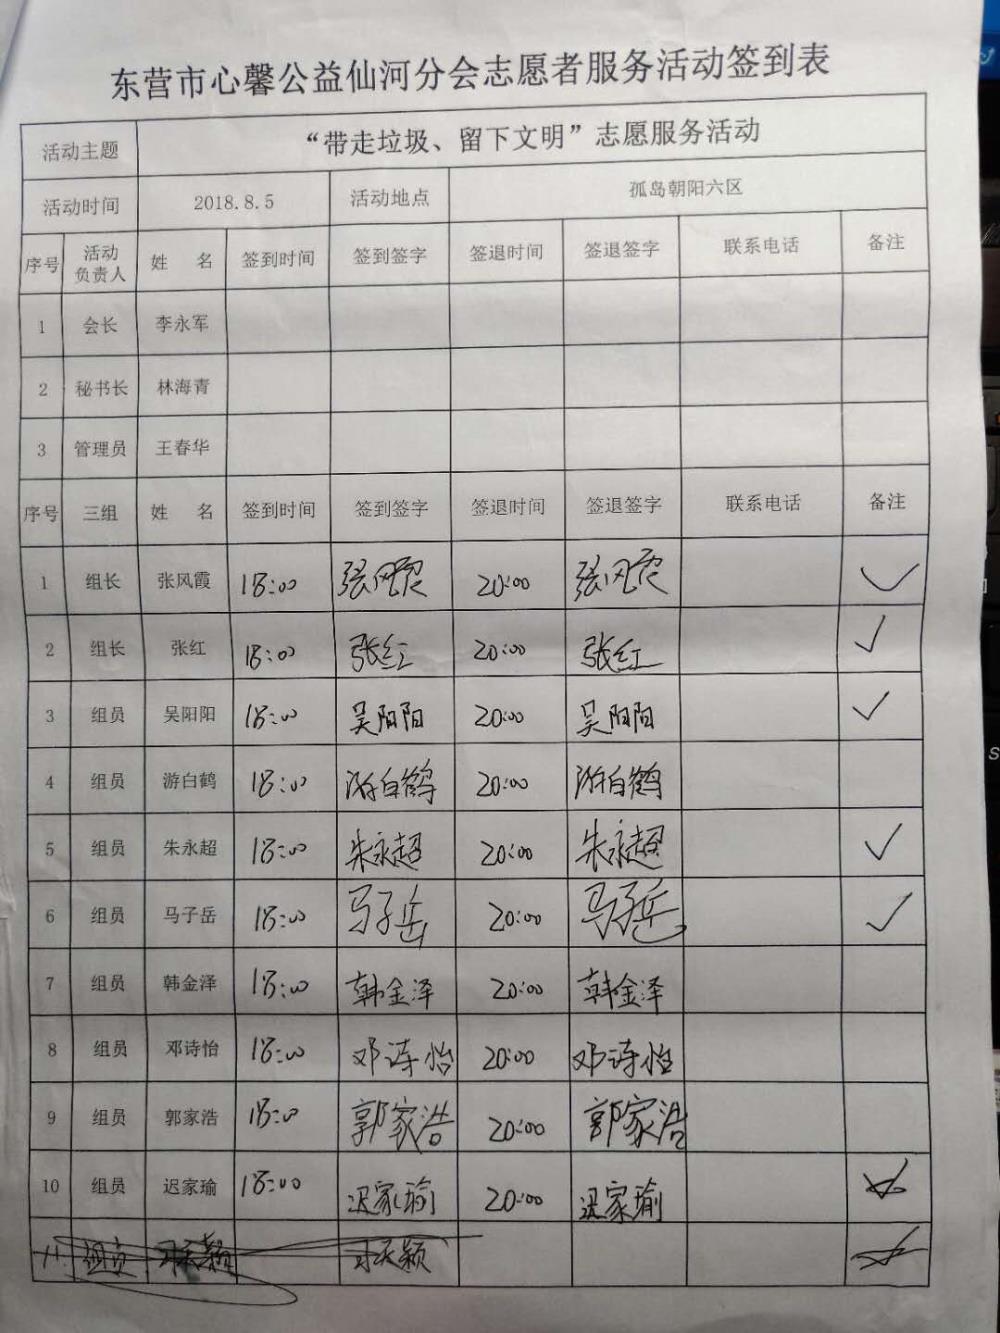 东营市心馨公益仙河分会志愿者服务活动签到表
活动主题 “带走垃圾、留下文明”志愿服务活动
活动时间 2018.8.5 活动地点 孤岛朝阳六区
序号 活动负责人 姓 名 签到时间 签到签字 签退时间 签退签字 联系电话 备注
1 会长 李永军
2 秘书长 林海青
3 管理员 王春华
序号 三组 姓 名 签到时间 签到签字 签退时间 签退签字 联系电话 备注
1 组长 张风霞 18:00 张风霞 20:00 张风霞 ✓
2 组长 张红 18:00 张红 20:00 张红 ✓
3 组员 吴阳阳 18:00 吴阳阳 20:00 吴阳阳 ✓
4 组员 游白鹤 18:00 游白鹤 20:00 游白鹤
5 组员 朱永超 18:00 朱永超 20:00 朱永超 ✓
6 组员 马子岳 18:00 马子岳 20:00 马子岳 ✓
7 组员 韩金泽 18:00 韩金泽 20:00 韩金泽
8 组员 邓诗怡 18:00 邓诗怡 20:00 邓诗怡
9 组员 郭家浩 18:00 郭家浩 20:00 郭家浩
10 组员 迟家瑜 18:00 迟家瑜 20:00 迟家瑜
11 组员